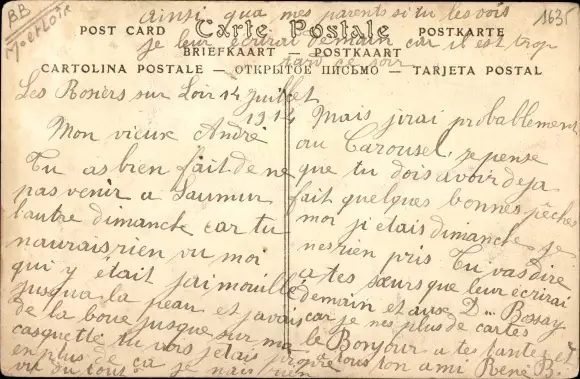 BB
M et Loire
1635
Ainsi qua mes parents si tu les vois
je leur ecrirai demain car il est trop
tard ce soir
POST CARD Carte Postale POSTKARTE
BRIEFKAART — POSTKAART
CARTOLINA POSTALE — ОТКРЫТОЕ ПИСЬМО — TARJETA POSTAL
Les Rosiers sur Loir 14 Juillet
1914
Mon vieux André
Tu as bien fait de ne
pas venir a Saumur
l'autre dimanche car tu
naurais rien vu moi
qui y était jai mouillé
jusqua la peau et javais
de la boue jusque sur ma
casquette tu vois jetais propre
en plus de ça je nais rien
vu du tout
Mais jirai probablement
au Carousel, je pense
que tu dois avoir deja
fait quelques bonnes pêches
moi jetais dimanche je
nes rien pris Tu vas dire
a tes sœurs que leur écrirai
demain et aux D Bossay
car je nes plus de cartes
le Bonjour a tes tantes et
tous ton ami René B.